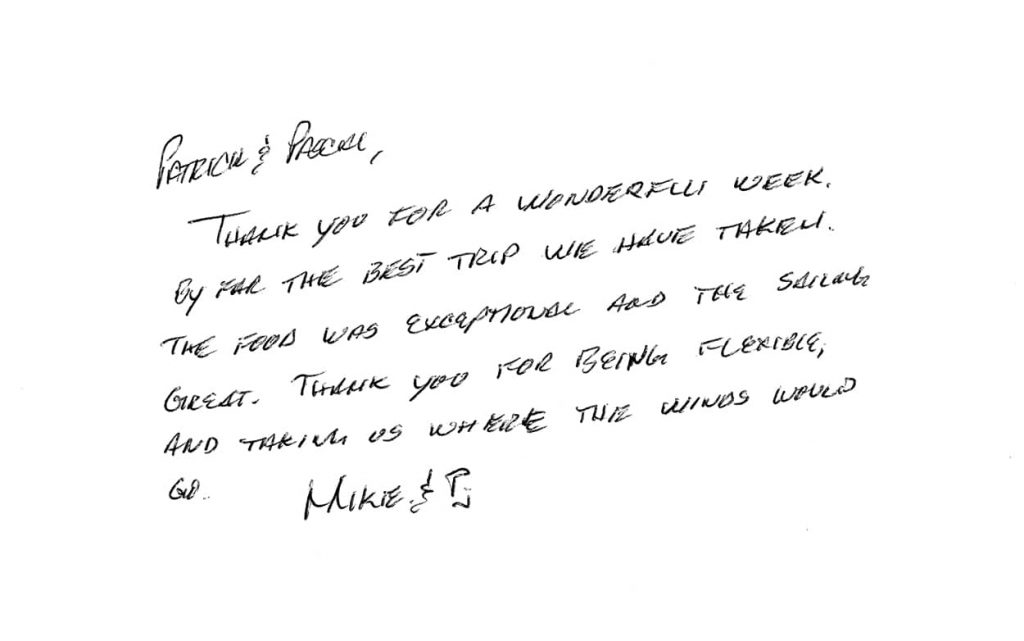 PATRICK & PASCAL,
THANK YOU FOR A WONDERFUL WEEK.
BY FAR THE BEST TRIP WE HAVE TAKEN.
THE FOOD WAS EXCEPTIONAL AND THE SAILING
GREAT. THANK YOU FOR BEING FLEXIBLE,
AND TAKING US WHERE THE WINDS WOULD
GO..
MIKE & PJ